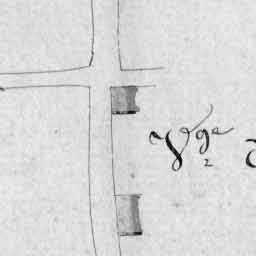 Vge
2